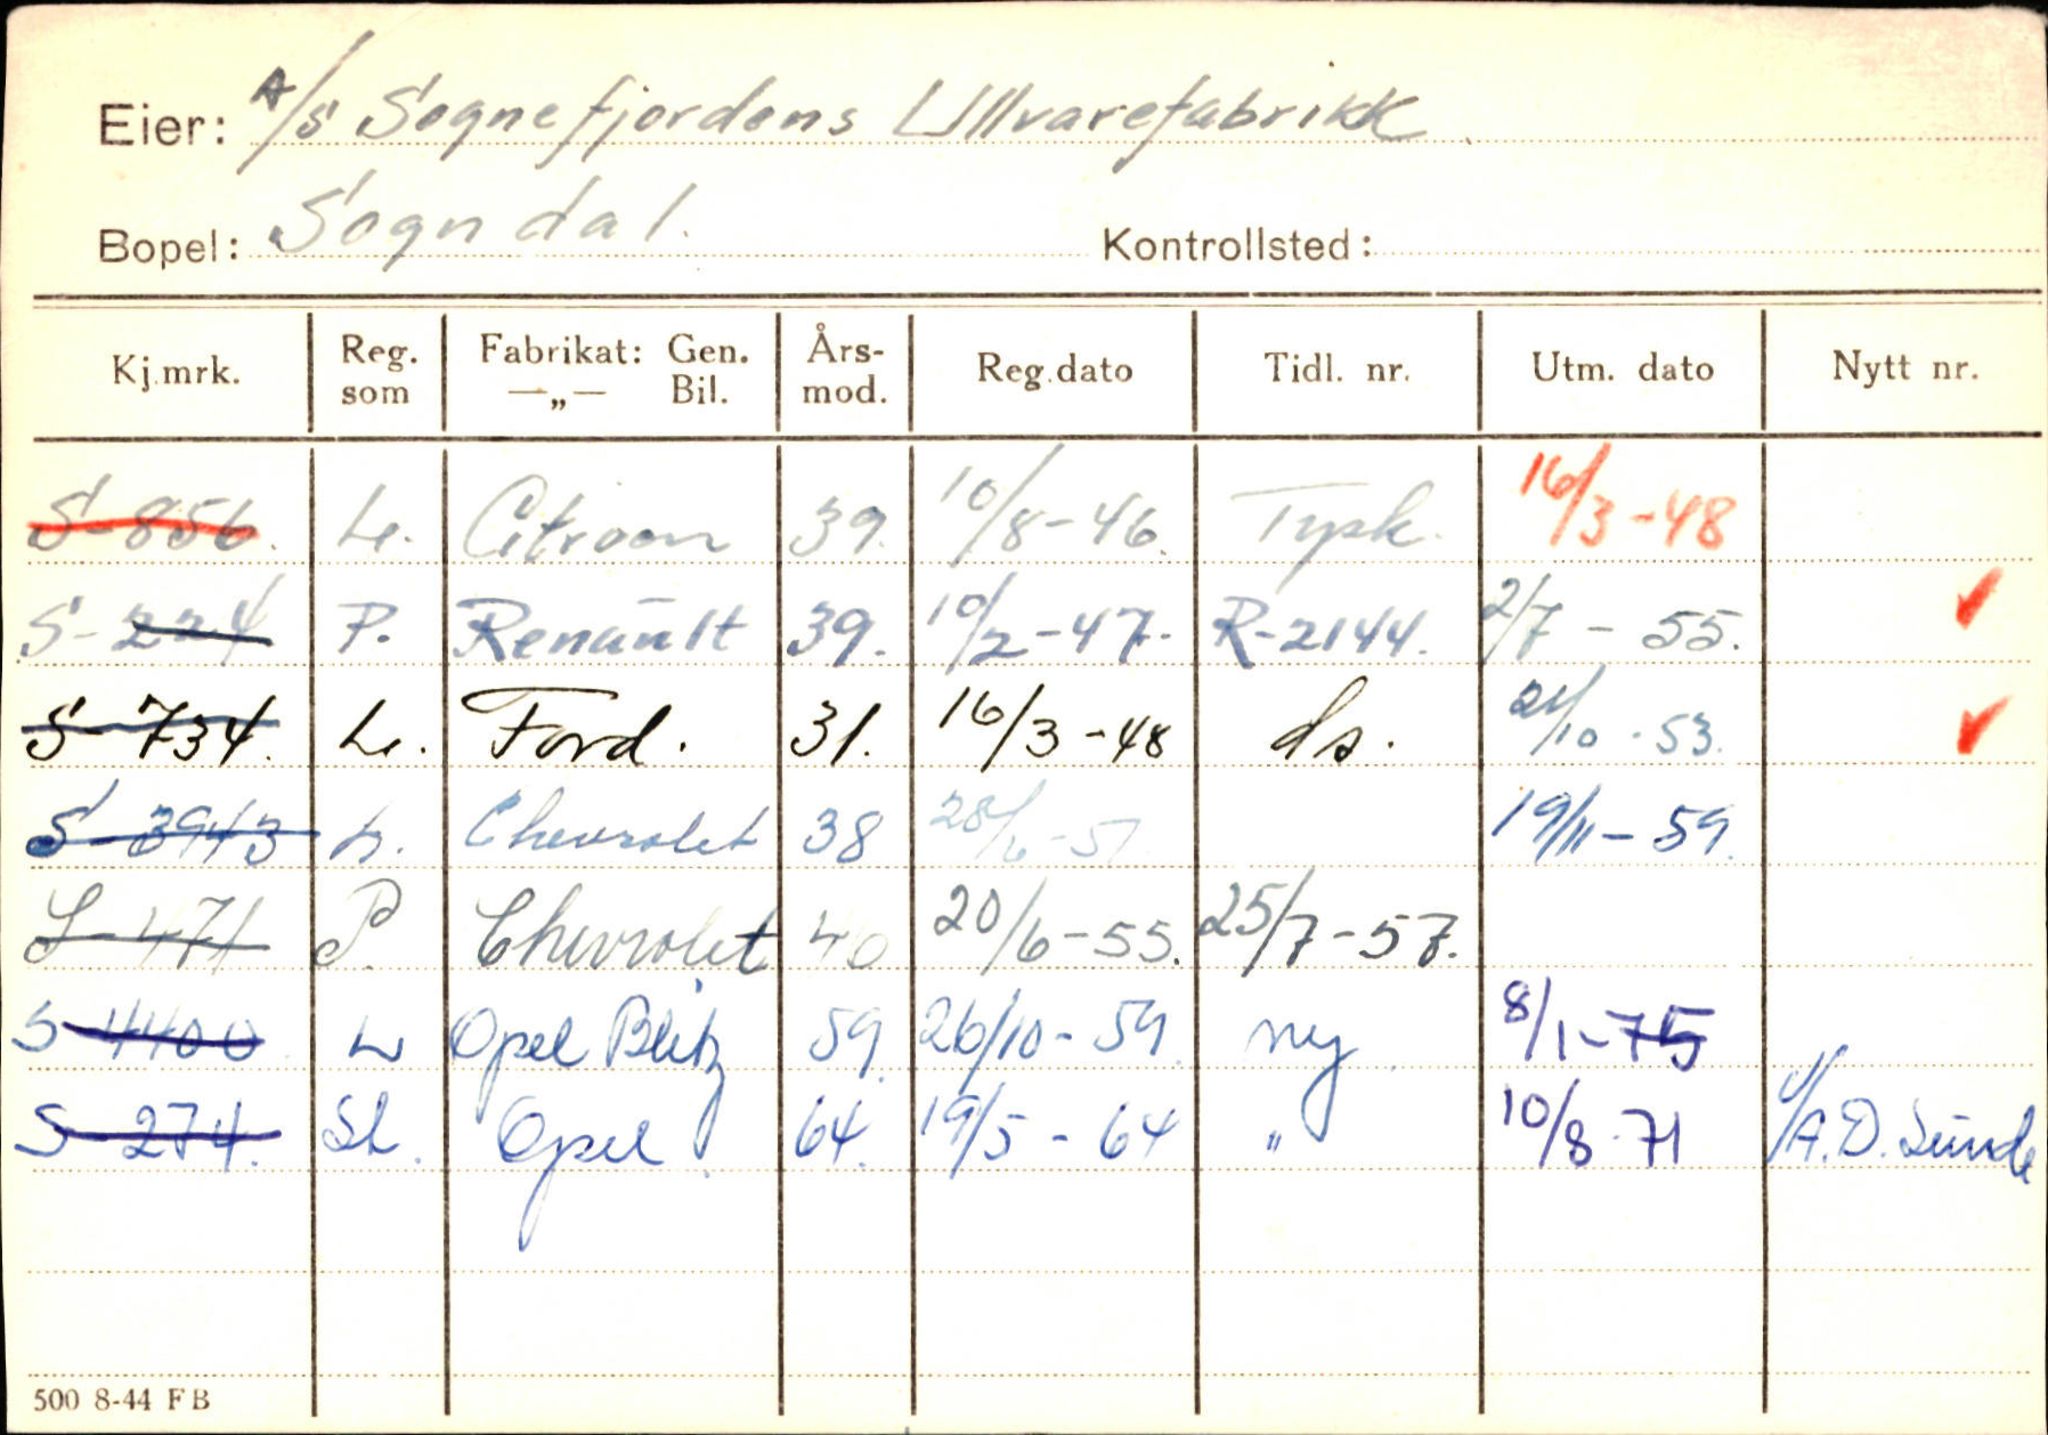 Eier: A/S Sognefjordens Ullvarefabrikk
Bopel: Sogndal. Kontrollsted:
Kj.mrk. Reg. som Fabrikat: Gen. —„— Bil. Års- mod. Reg.dato Tidl. nr. Utm. dato Nytt nr.
S-856. L. Citroen 39. 10/8-46. Tysk. 16/3-48
S-224 P. Renault 39. 10/2-47. R-2144. 2/7-55. ✓
S-734. L. Ford. 31. 16/3-48 ds. 21/10-53. ✓
S-3943 L. Chevrolet 38 28/6-51 19/11-59.
S-471 P. Chevrolet 40 20/6-55. 25/7-57.
S-4400 L Opel Blitz 59. 26/10-59. ny 8/1-75
S-274. St. Opel 64. 19/5-64 " 10/8-71 A.D. Sunde
500 8-44 FB